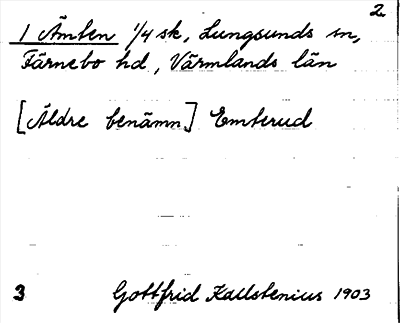 2.
1 Ämten 1/4 sk, Lungsunds sn,
Färnebo hd, Värmlands län
[Äldre benämn.] Emterud
3 Gottfrid Kallstenius 1903